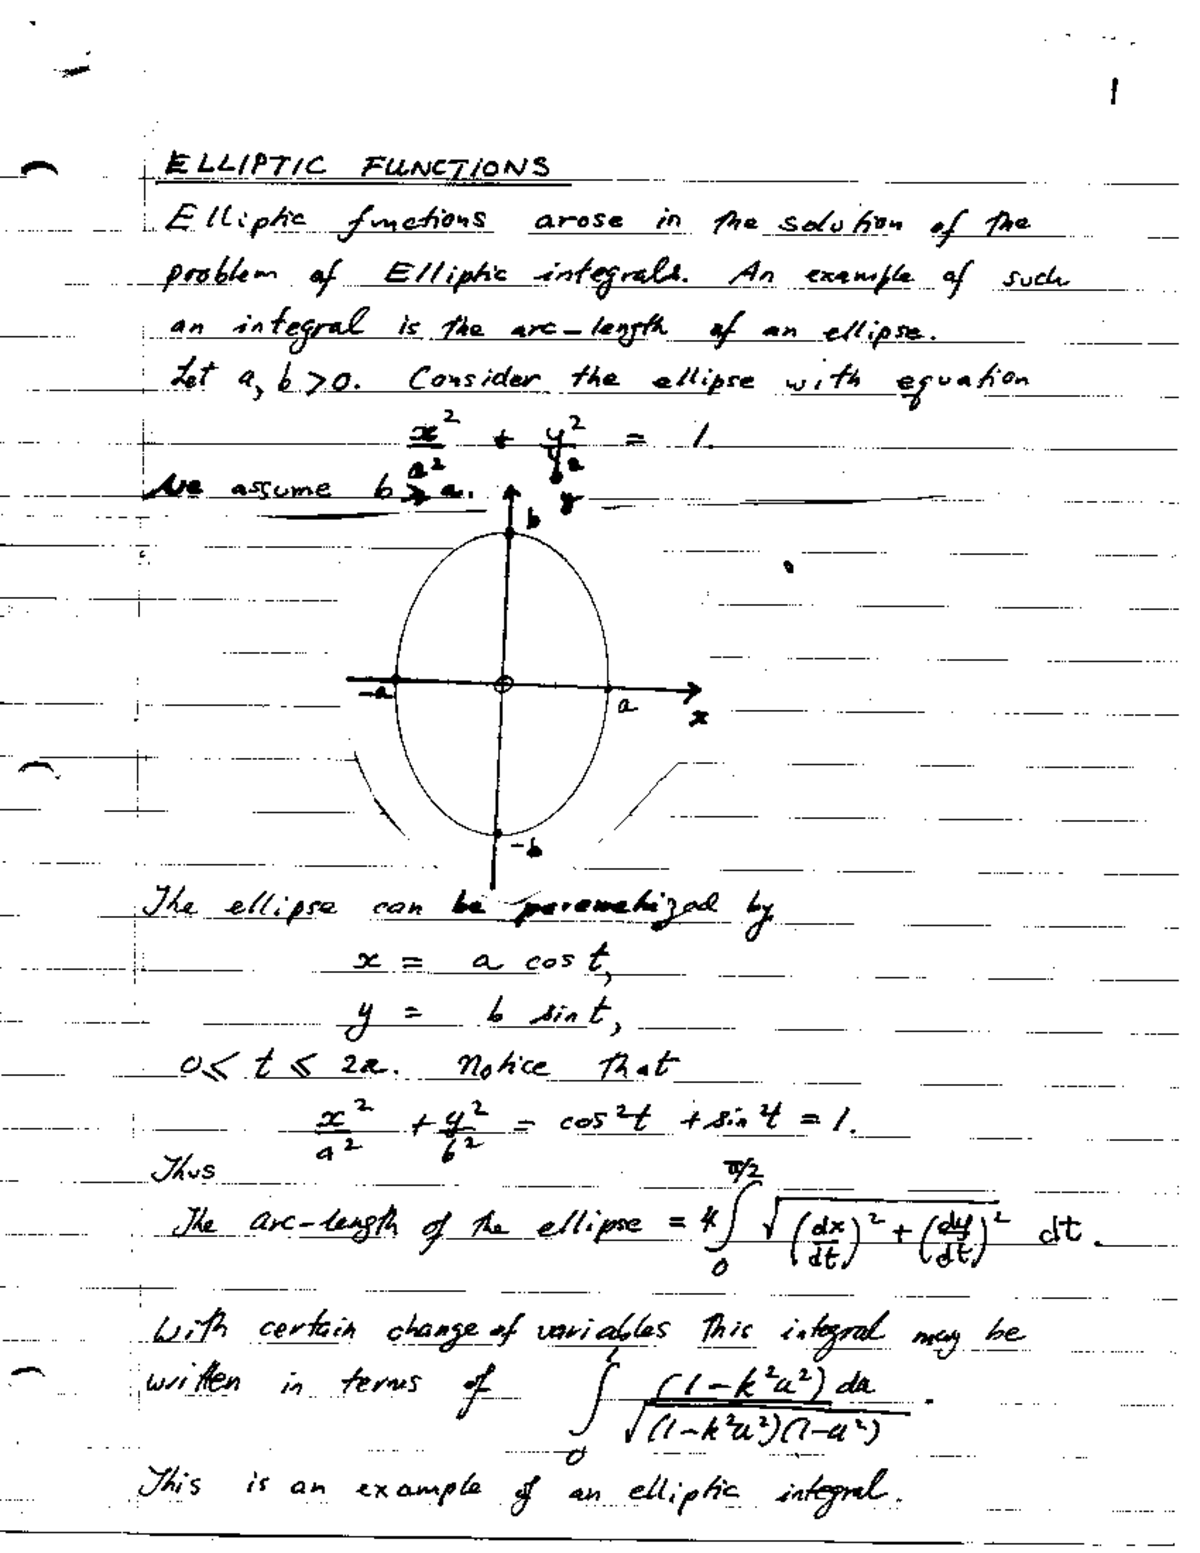 1
ELLIPTIC FUNCTIONS
Elliptic functions arose in the solution of the
problem of Elliptic integrals. An example of such
an integral is the arc-length of an ellipse.
Let a, b > 0. Consider the ellipse with equation
x²/a² + y²/b² = 1.
We assume b > a.
y
b
-a
a
x
-b
The ellipse can be parametrized by
x = a cos t,
y = b sin t,
0 ≤ t ≤ 2π. Notice that
x²/a² + y²/b² = cos²t + sin²t = 1.
Thus
The arc-length of the ellipse = 4 ∫₀^{π/2} √((dx/dt)² + (dy/dt)²) dt.
With certain change of variables this integral may be
written in terms of ∫₀¹ (1-k²u²) du / √((1-k²u²)(1-u²)) .
This is an example of an elliptic integral.